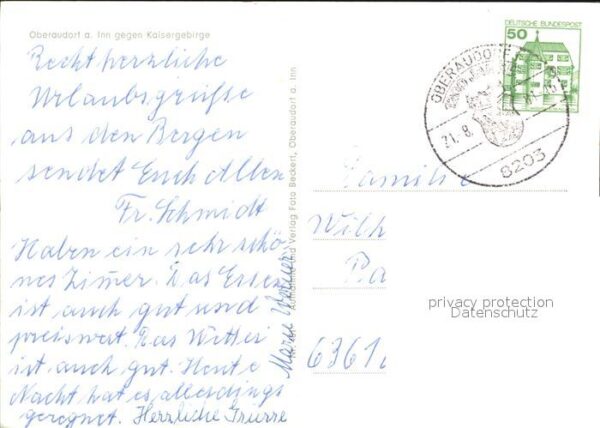 Oberaudorf a. Inn gegen Kaisergebirge
Recht herzliche
Urlaubsgrüsse
aus den Bergen
sendet Euch Allen
Fr. Schmidt
Haben ein sehr schö-
nes Zimer. Das Essen
ist auch gut und
preiswert. Das Wetter
ist auch gut. Heute
Nacht hat es allerdings
geregnet. Herzliche Grüsse
Verlag Foto Beckert, Oberaudorf a. Inn
DEUTSCHE BUNDESPOST
50
OBERAUDORF
21. 8.
8203
Familie
Wilh
Ra
6361
privacy protection
Datenschutz